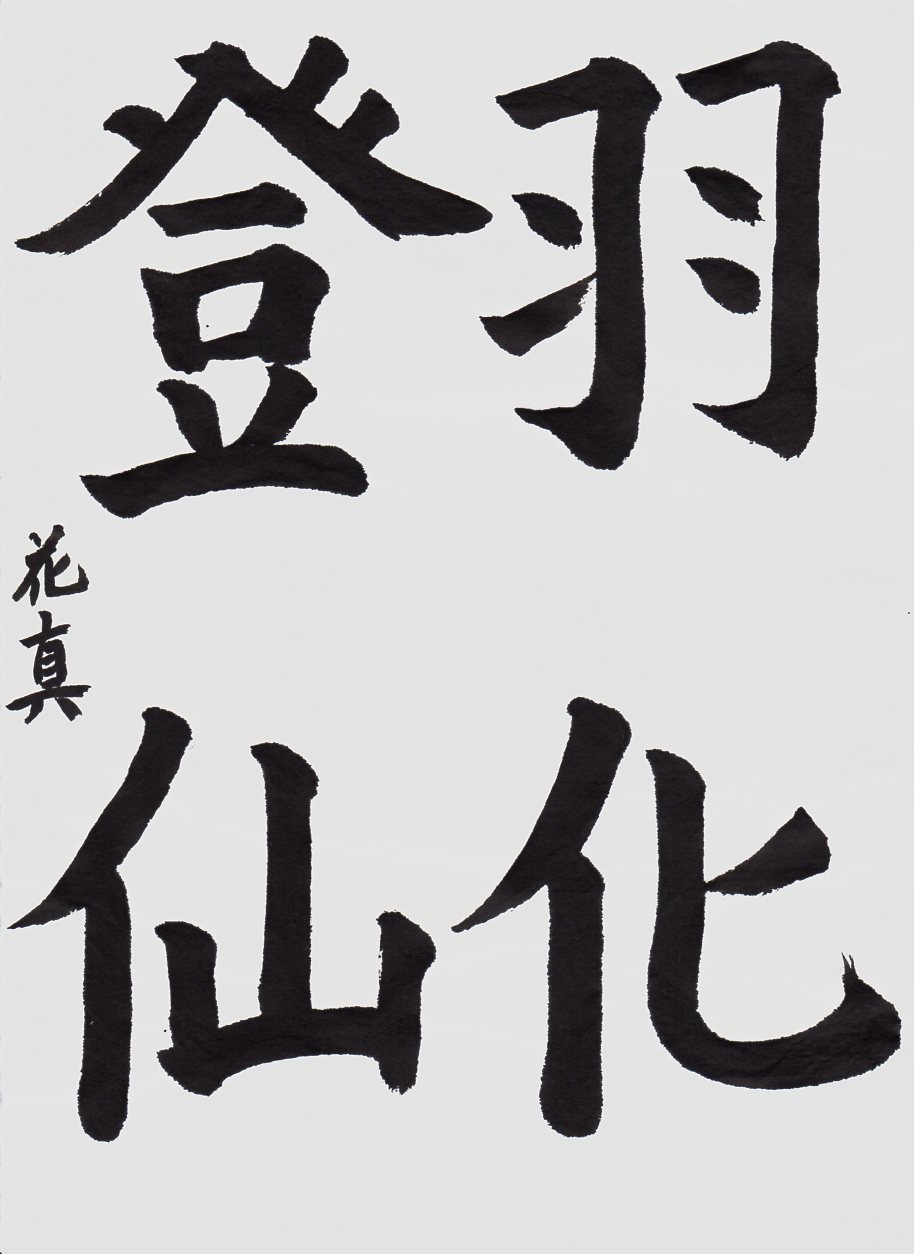 羽化
登仙
花真